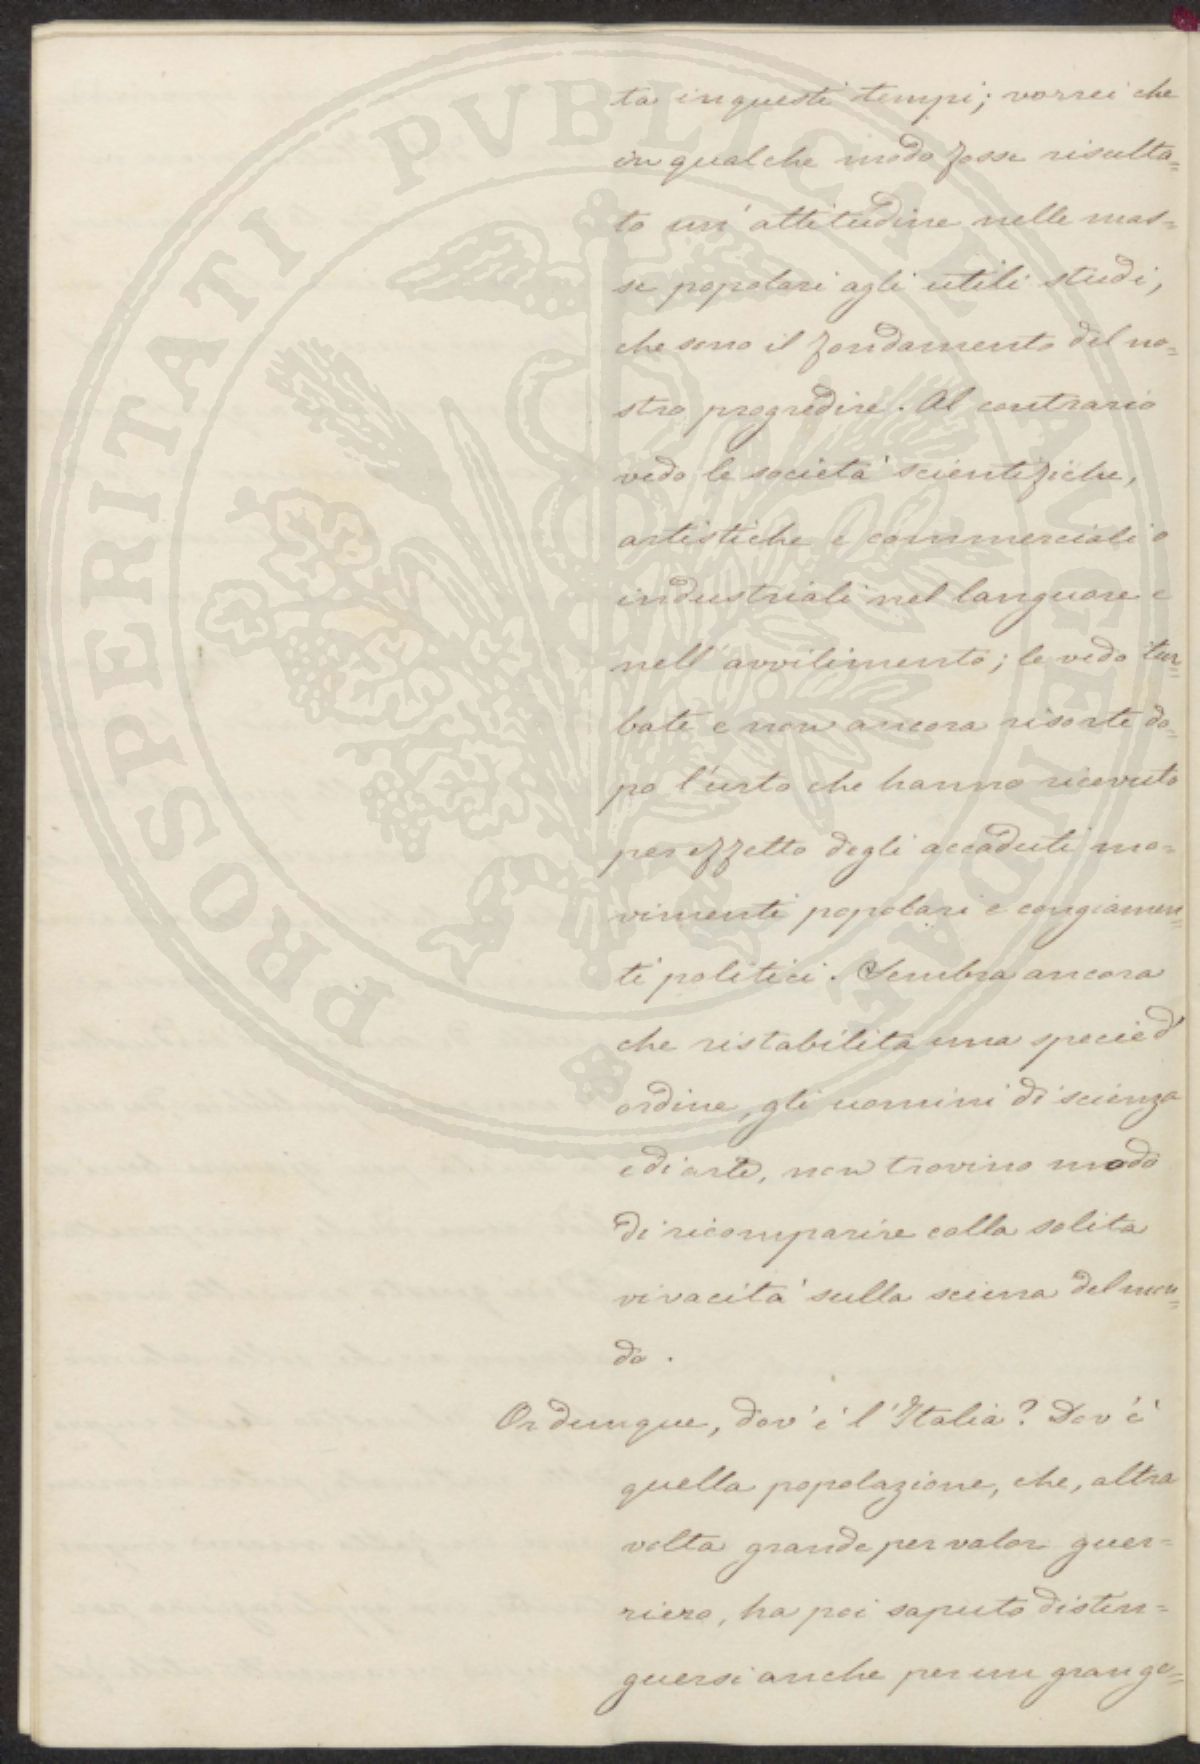 PROSPERITATI PVBLICAE AVGENDAE
ta in questi tempi; vorrei che
in qualche modo fosse risulta=
to un' attitudine nelle mas=
se popolari agli utili studi,
che sono il fondamento del no=
stro progredire. Al contrario
vedo le società scientifiche,
artistiche e commerciali o
industriali nel languore e
nell' avvilimento; le vedo tur=
bate e non ancora risorte do=
po l'urto che hanno ricevuto
per effetto degli accaduti mo=
vimenti popolari e congiamen=
ti politici. Sembra ancora
che ristabilita una specie d'
ordine, gli uomini di scienza
e di arte, non trovino modo
di ricomparire colla solita
vivacità sulla sciena del mon=
do.
Or dunque, dov'è l'Italia? Dov'è
quella popolazione, che, altra
volta grande per valor guer=
riero, ha poi saputo distin=
guersi anche per un gran ge=